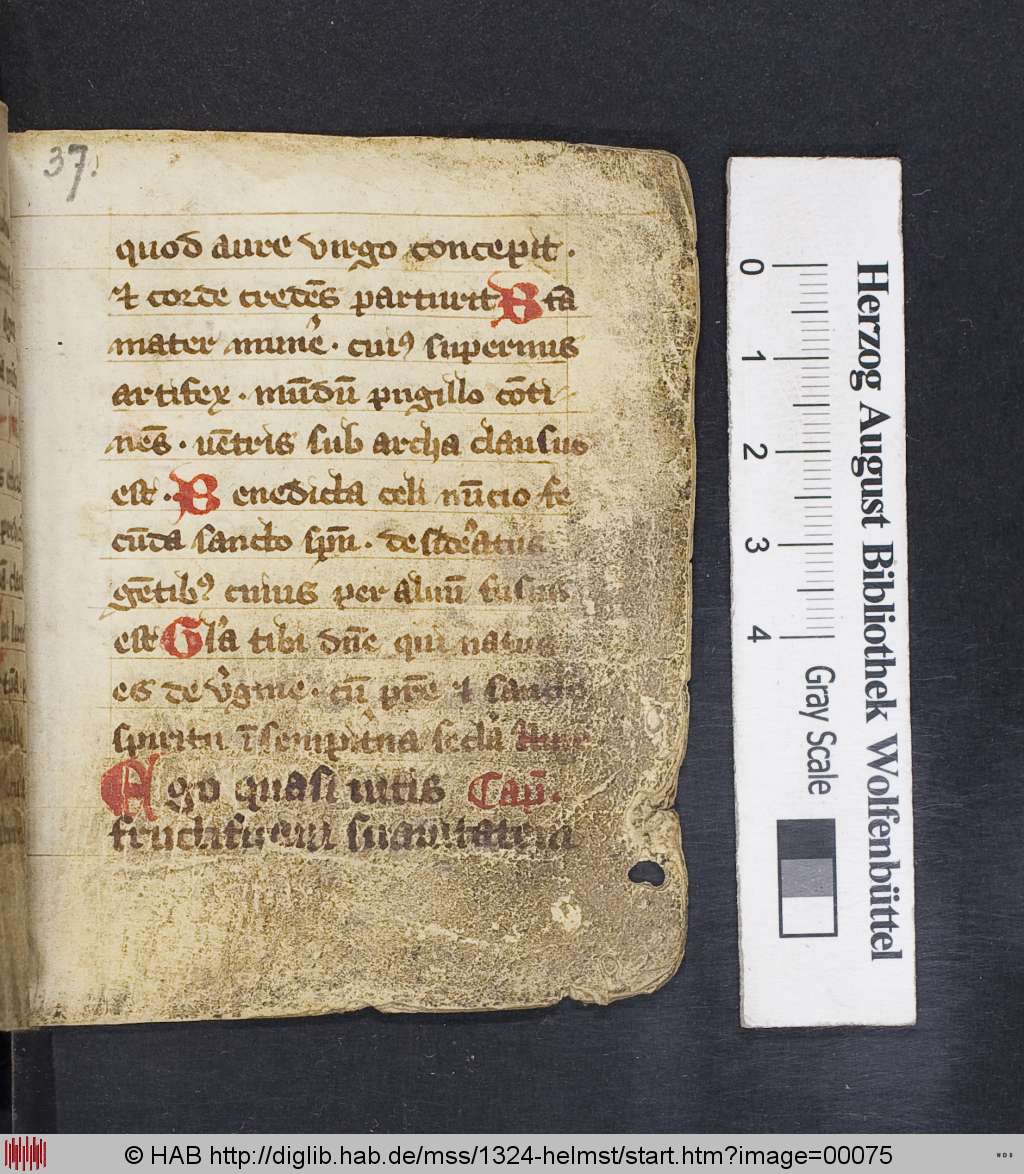 37.
quod aure virgo concepit ·
⁊ corde credēs parturit Bta̅
mater mune̅ · cuiꝰ supernus
artifex · mu̅du̅ pugillo co̅ti
ne̅s · ue̅tris sub archa clausus
est · Benedicta celi nu̅cio fe
cu̅da sancto sp̅u · desideratus
ge̅tibꝰ cuius per aluu̅ fusus
est Gl̅a tibi dn̅e qui natus
es de v̛gine · cu̅ pr̅e ⁊ sancto
spiritu i̅ sempit̛na secl̅a Ame̅
Ego quasi uitis Can̅ ·
fructificaui suauitatem
0 1 2 3 4
Gray Scale
Herzog August Bibliothek Wolfenbüttel
© HAB http://diglib.hab.de/mss/1324-helmst/start.htm?image=00075